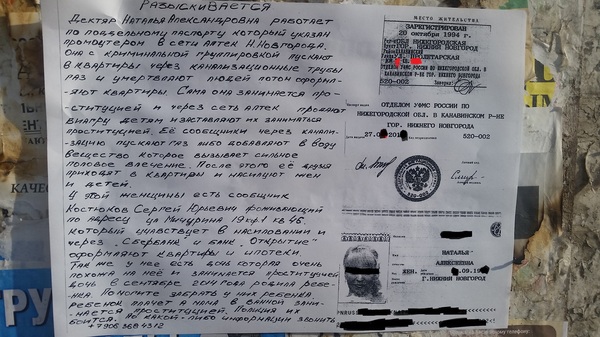 РАЗЫСКИВАЕТСЯ
ДЕКТЯР НАТАЛЬЯ АЛЕКСАНДРОВНА РАБОТАЕТ
ПО ПОДДЕЛЬНОМУ ПАСПОРТУ КОТОРЫЙ УКАЗАН
ПРОМОУТЕРОМ В СЕТИ АПТЕК Н.НОВГОРОДА.
ОНА С КРИМИНАЛЬНОЙ ГРУППИРОВКОЙ ПУСКАЮТ
В КВАРТИРЫ ЧЕРЕЗ КАНАЛИЗАЦИОННЫЕ ТРУБЫ
ГАЗ И УМЕРТВЛЯЮТ ЛЮДЕЙ ПОТОМ ОФОРМЛ-
ЯЮТ КВАРТИРЫ. САМА ОНА ЗАНИМАЕТСЯ ПРО-
СТИТУЦИЕЙ И ЧЕРЕЗ СЕТЬ АПТЕК ПРОДАЮТ
ВИАГРУ ДЕТЯМ И ЗАСТАВЛЯЮТ ИХ ЗАНИМАТЬСЯ
ПРОСТИТУЦИЕЙ. ЕЁ СООБЩНИКИ ЧЕРЕЗ КАНАЛИ-
ЗАЦИЮ ПУСКАЮТ ГАЗ ЛИБО ДОБАВЛЯЮТ В ВОДУ
ВЕЩЕСТВО КОТОРОЕ ВЫЗЫВАЕТ СИЛЬНОЕ
ПОЛОВОЕ ВЛЕЧЕНИЕ. ПОСЛЕ ЭТОГО ЕЁ ДРУЗЬЯ
ПРИХОДЯТ В КВАРТИРЫ И НАСИЛУЮТ ЖЕН
И ДЕТЕЙ.
У ЭТОЙ ЖЕНЩИНЫ ЕСТЬ СООБЩНИК
КОСТЮКОВ СЕРГЕЙ ЮРЬЕВИЧ ПРОЖИВАЮЩИЙ
ПО АДРЕСУ УЛ МИЧУРИНА 19 КОР.1 КВ 45.
КОТОРЫЙ УЧАВСТВУЕТ В НАСИЛОВАНИИ И
ЧЕРЕЗ „СБЕРБАНК" И БАНК „ОТКРЫТИЕ"
ОФОРМЛЯЮТ КВАРТИРЫ И ИПОТЕКИ.
ТАК ЖЕ У НЕЁ ЕСТЬ ДОЧЬ КОТОРАЯ ОЧЕНЬ
ПОХОЖА НА НЕЁ И ЗАНИМАЕТСЯ ПРОСТИТУЦИЕЙ
ДОЧЬ В СЕНТЯБРЕ 2014 ГОДА РОДИЛА РЕБЕ-
НКА. ПОМОГИТЕ ЗАБРАТЬ У НИХ РЕБЕНКА
РЕБЕНОК ПЛАЧЕТ А МАМА В ВАННОЙ ЗАНИ-
МАЕТСЯ ПРОСТИТУЦИЕЙ. ПОЛИЦИЯ ИХ
БОИТСЯ. ПО КАКОЙ-ЛИБО ИНФОРМАЦИИ ЗВОНИТЬ
+7 906 368 4312
МЕСТО ЖИТЕЛЬСТВА
ЗАРЕГИСТРИРОВАН
20 октября 1994 г.
НИЖЕГОРОДСКАЯ
НИЖНИЙ НОВГОРОД
ПРОЛИТАРСКАЯ
520-002
ОТДЕЛОМ УФМС РОССИИ ПО
НИЖЕГОРОДСКОЙ ОБЛ. В КАНАВИНСКОМ Р-НЕ
ГОР. НИЖНЕГО НОВГОРОДА
520-002
НАТАЛЬЯ
АЛЕКСЕЕВНА
ЖЕН.
.09.19
Г.НИЖНИЙ НОВГОРОД